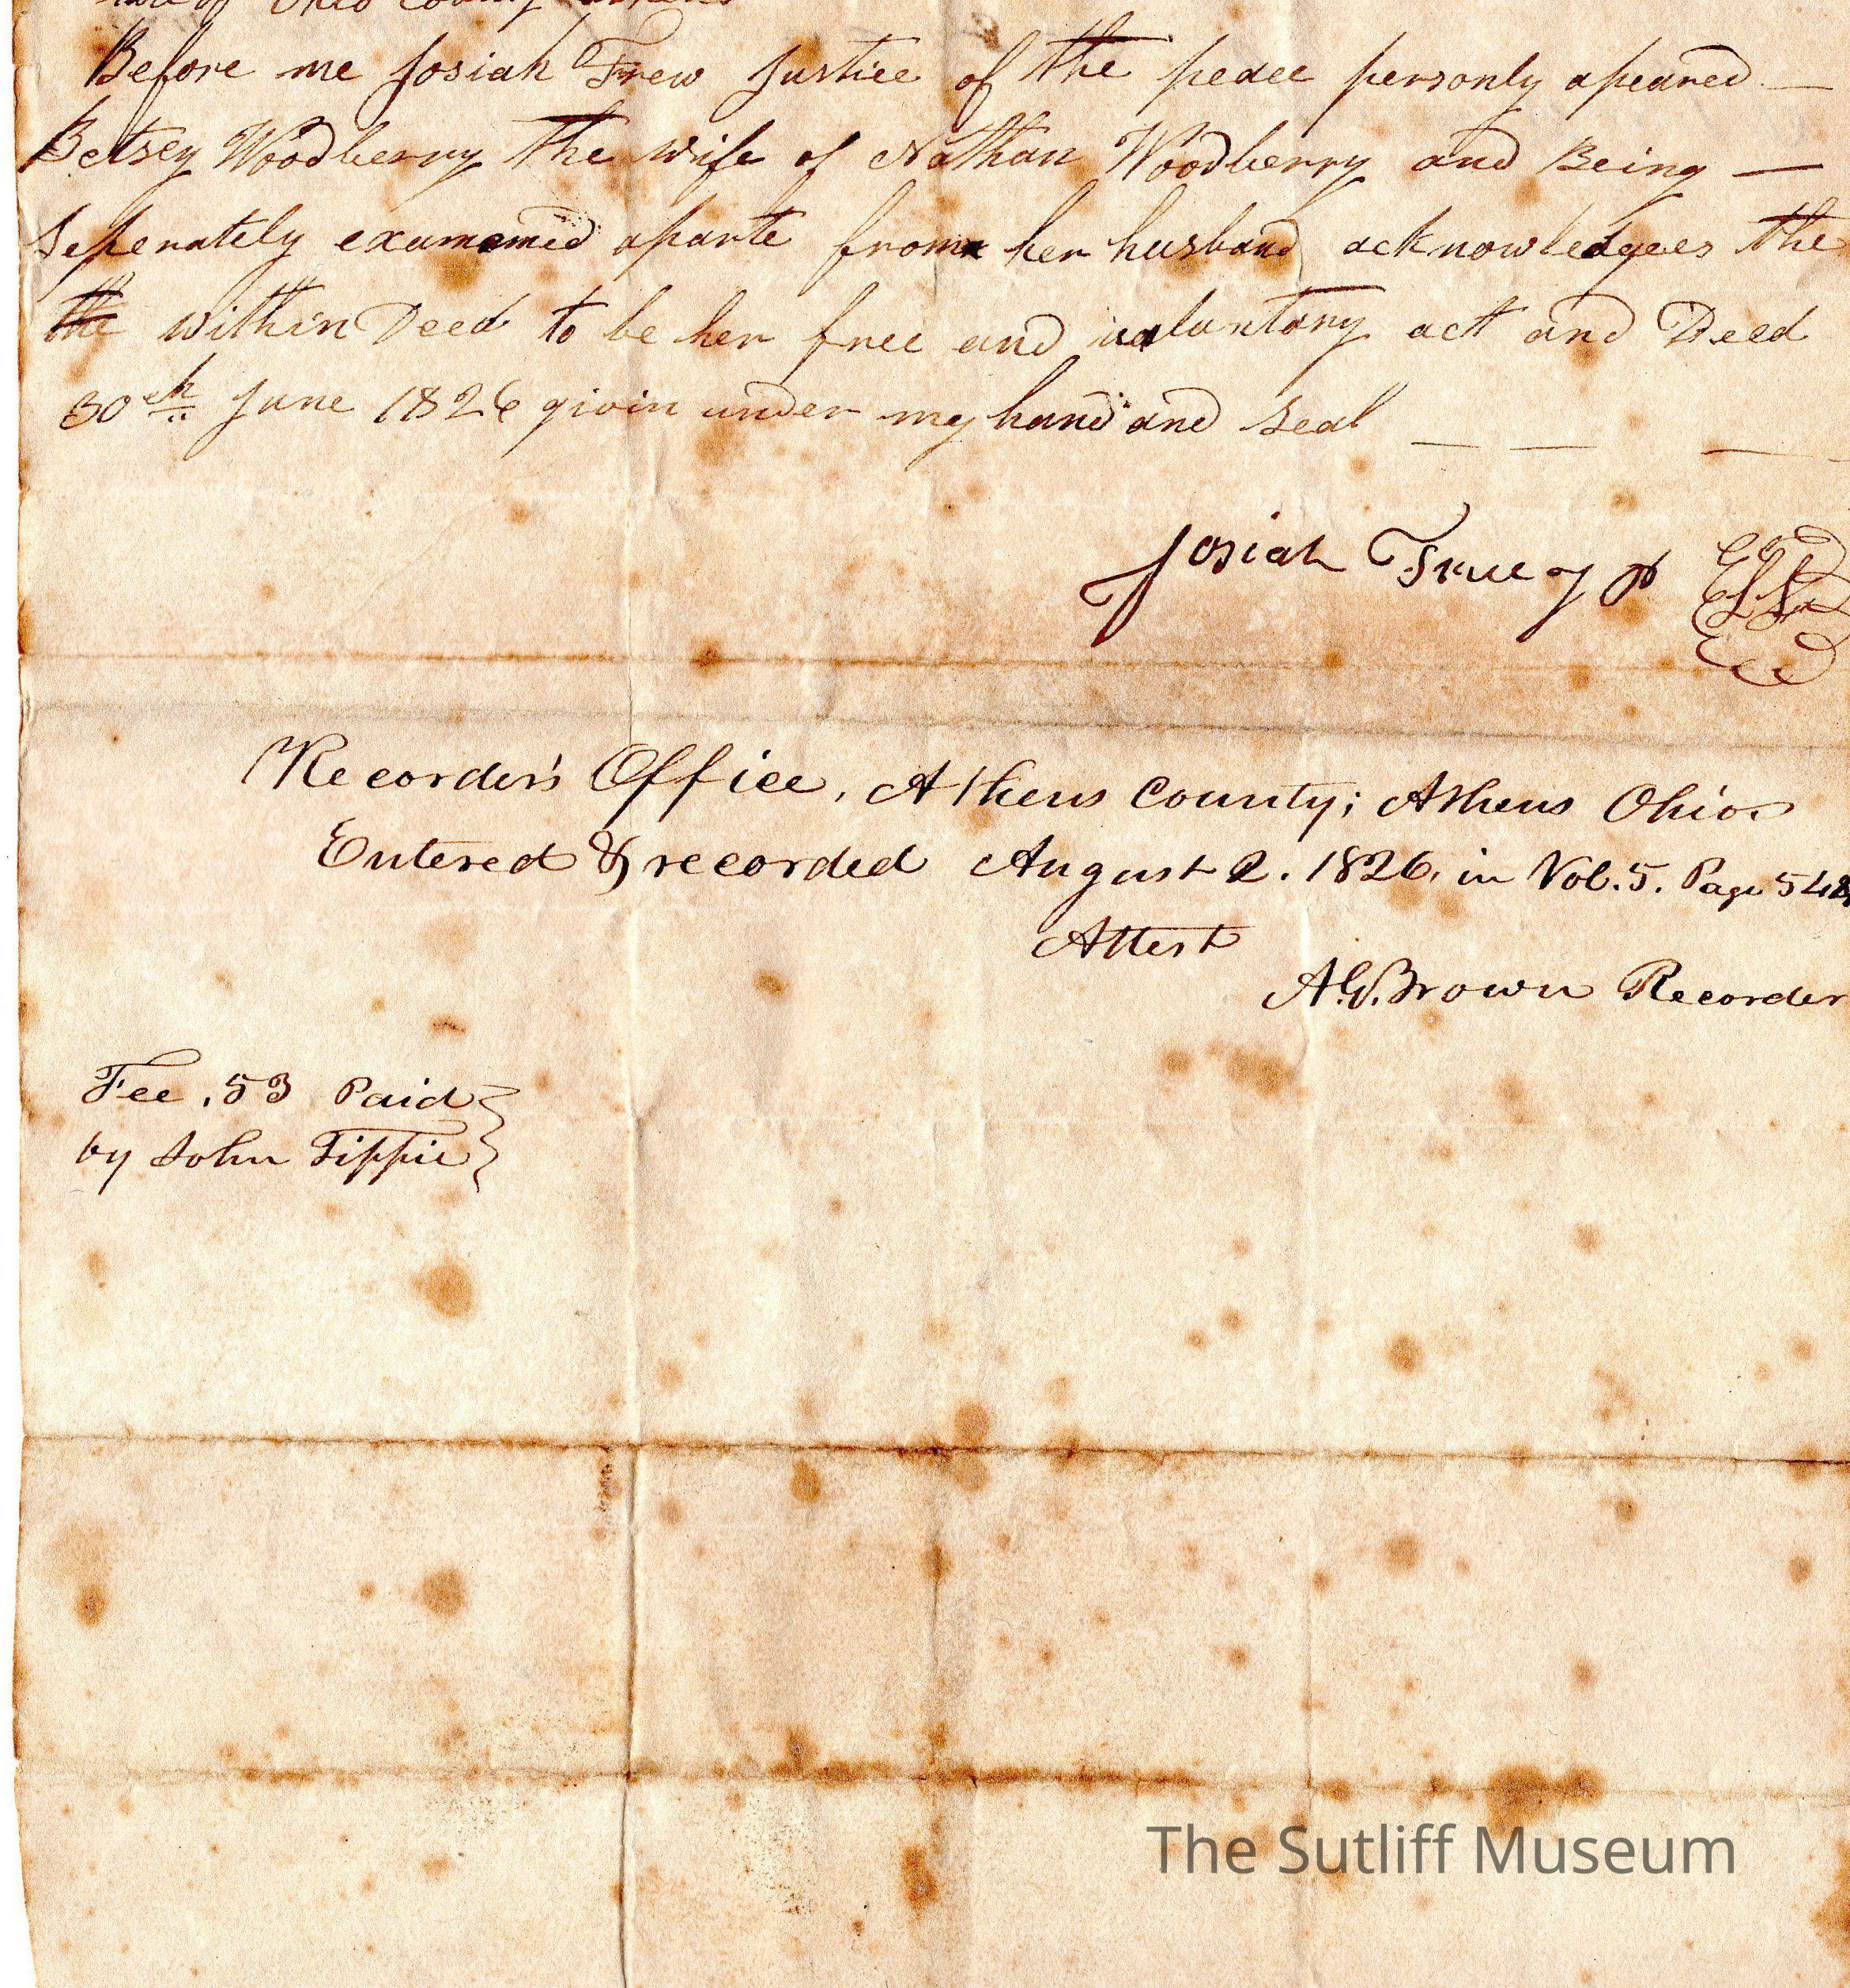 of Ohio County
Before me Josiah Trew Justice of the peace personly apeared —
Betsey Woodberry the wife of Nathan Woodberry and Being —
seperately examened aparte from her husband acknowledgees the
the within Deed to be her free and valuntary act and Deed
30th June 1826 givin under my hand and seal — — —
Josiah True J P
LS
Recorder's Office, Athens County; Athens Ohio
Entered & recorded August 2. 1826. in Vol. 5. Page 548
Attest
A.G. Brown Recorder
Fee .53 Paid
by John Tippie
The Sutliff Museum